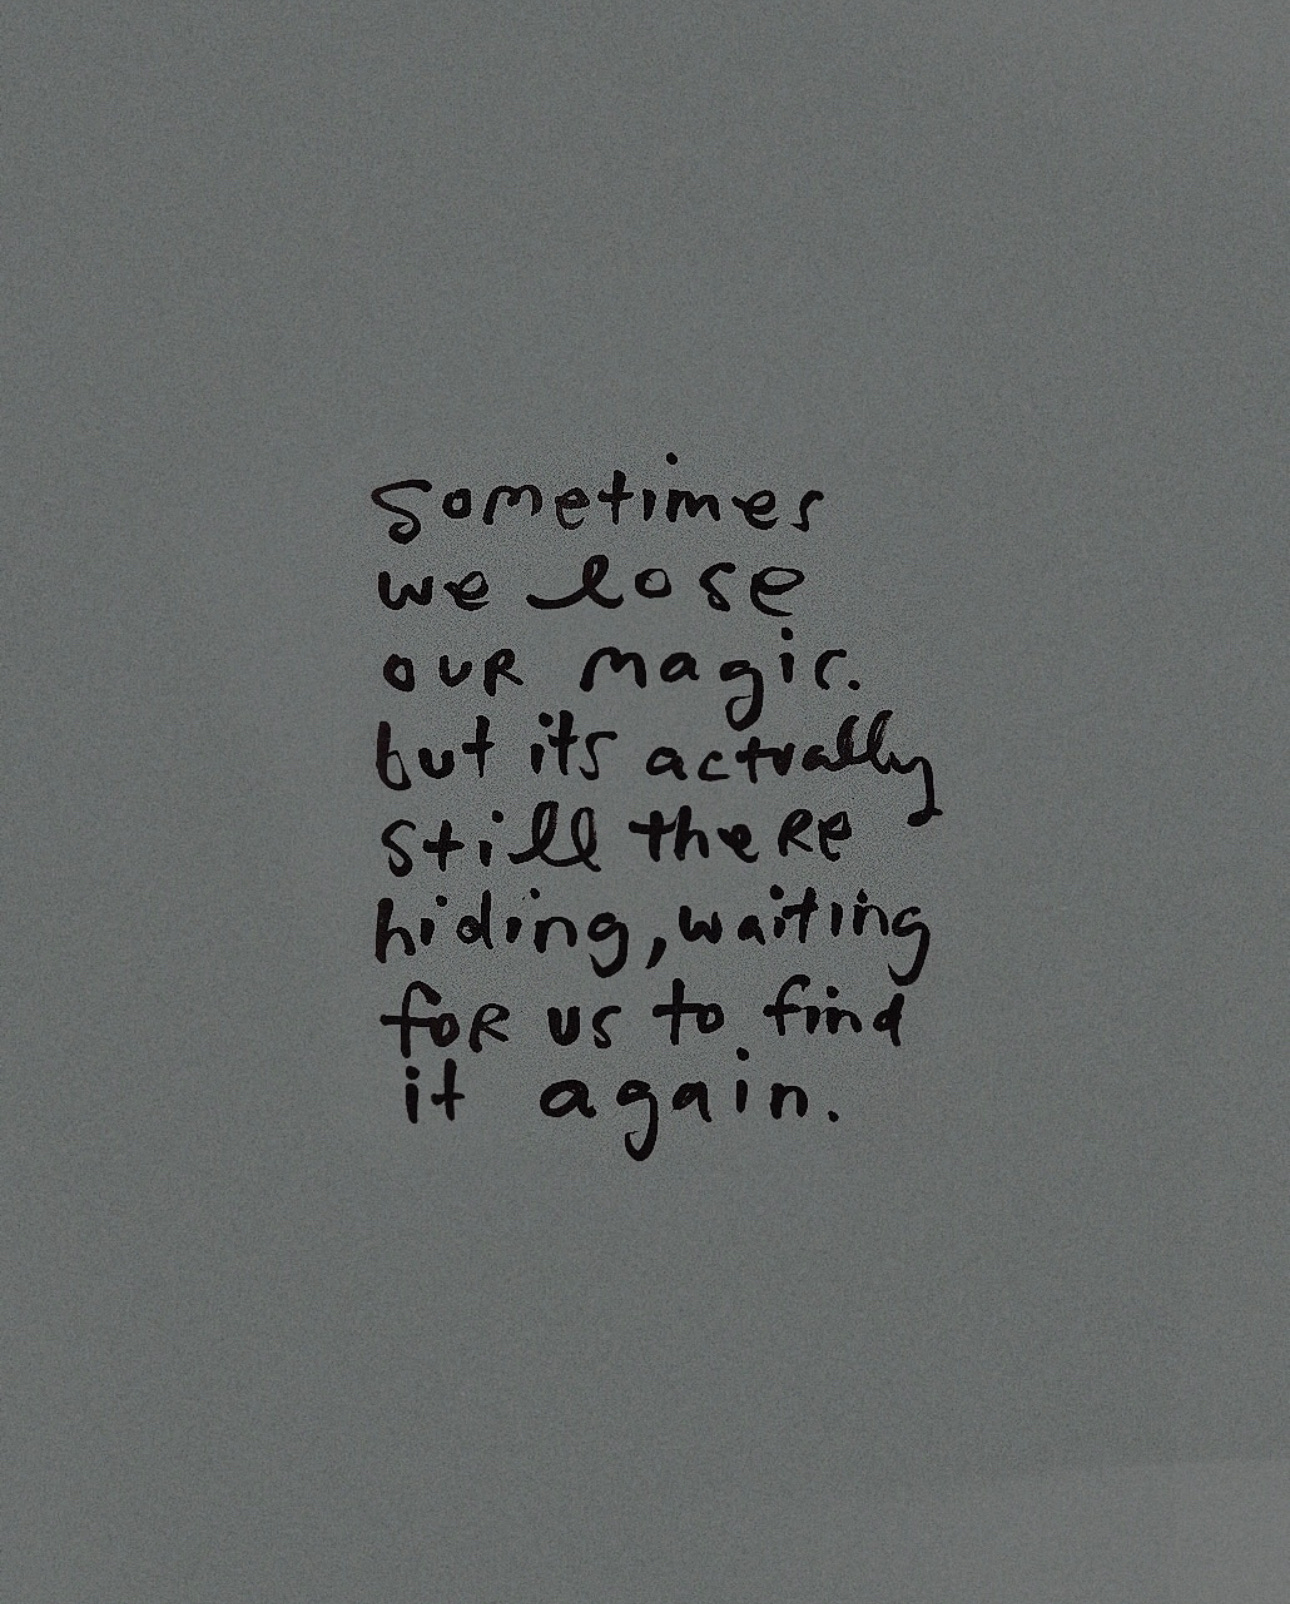 sometimes
we lose
our magic.
but its actually
still there
hiding, waiting
for us to find
it again.